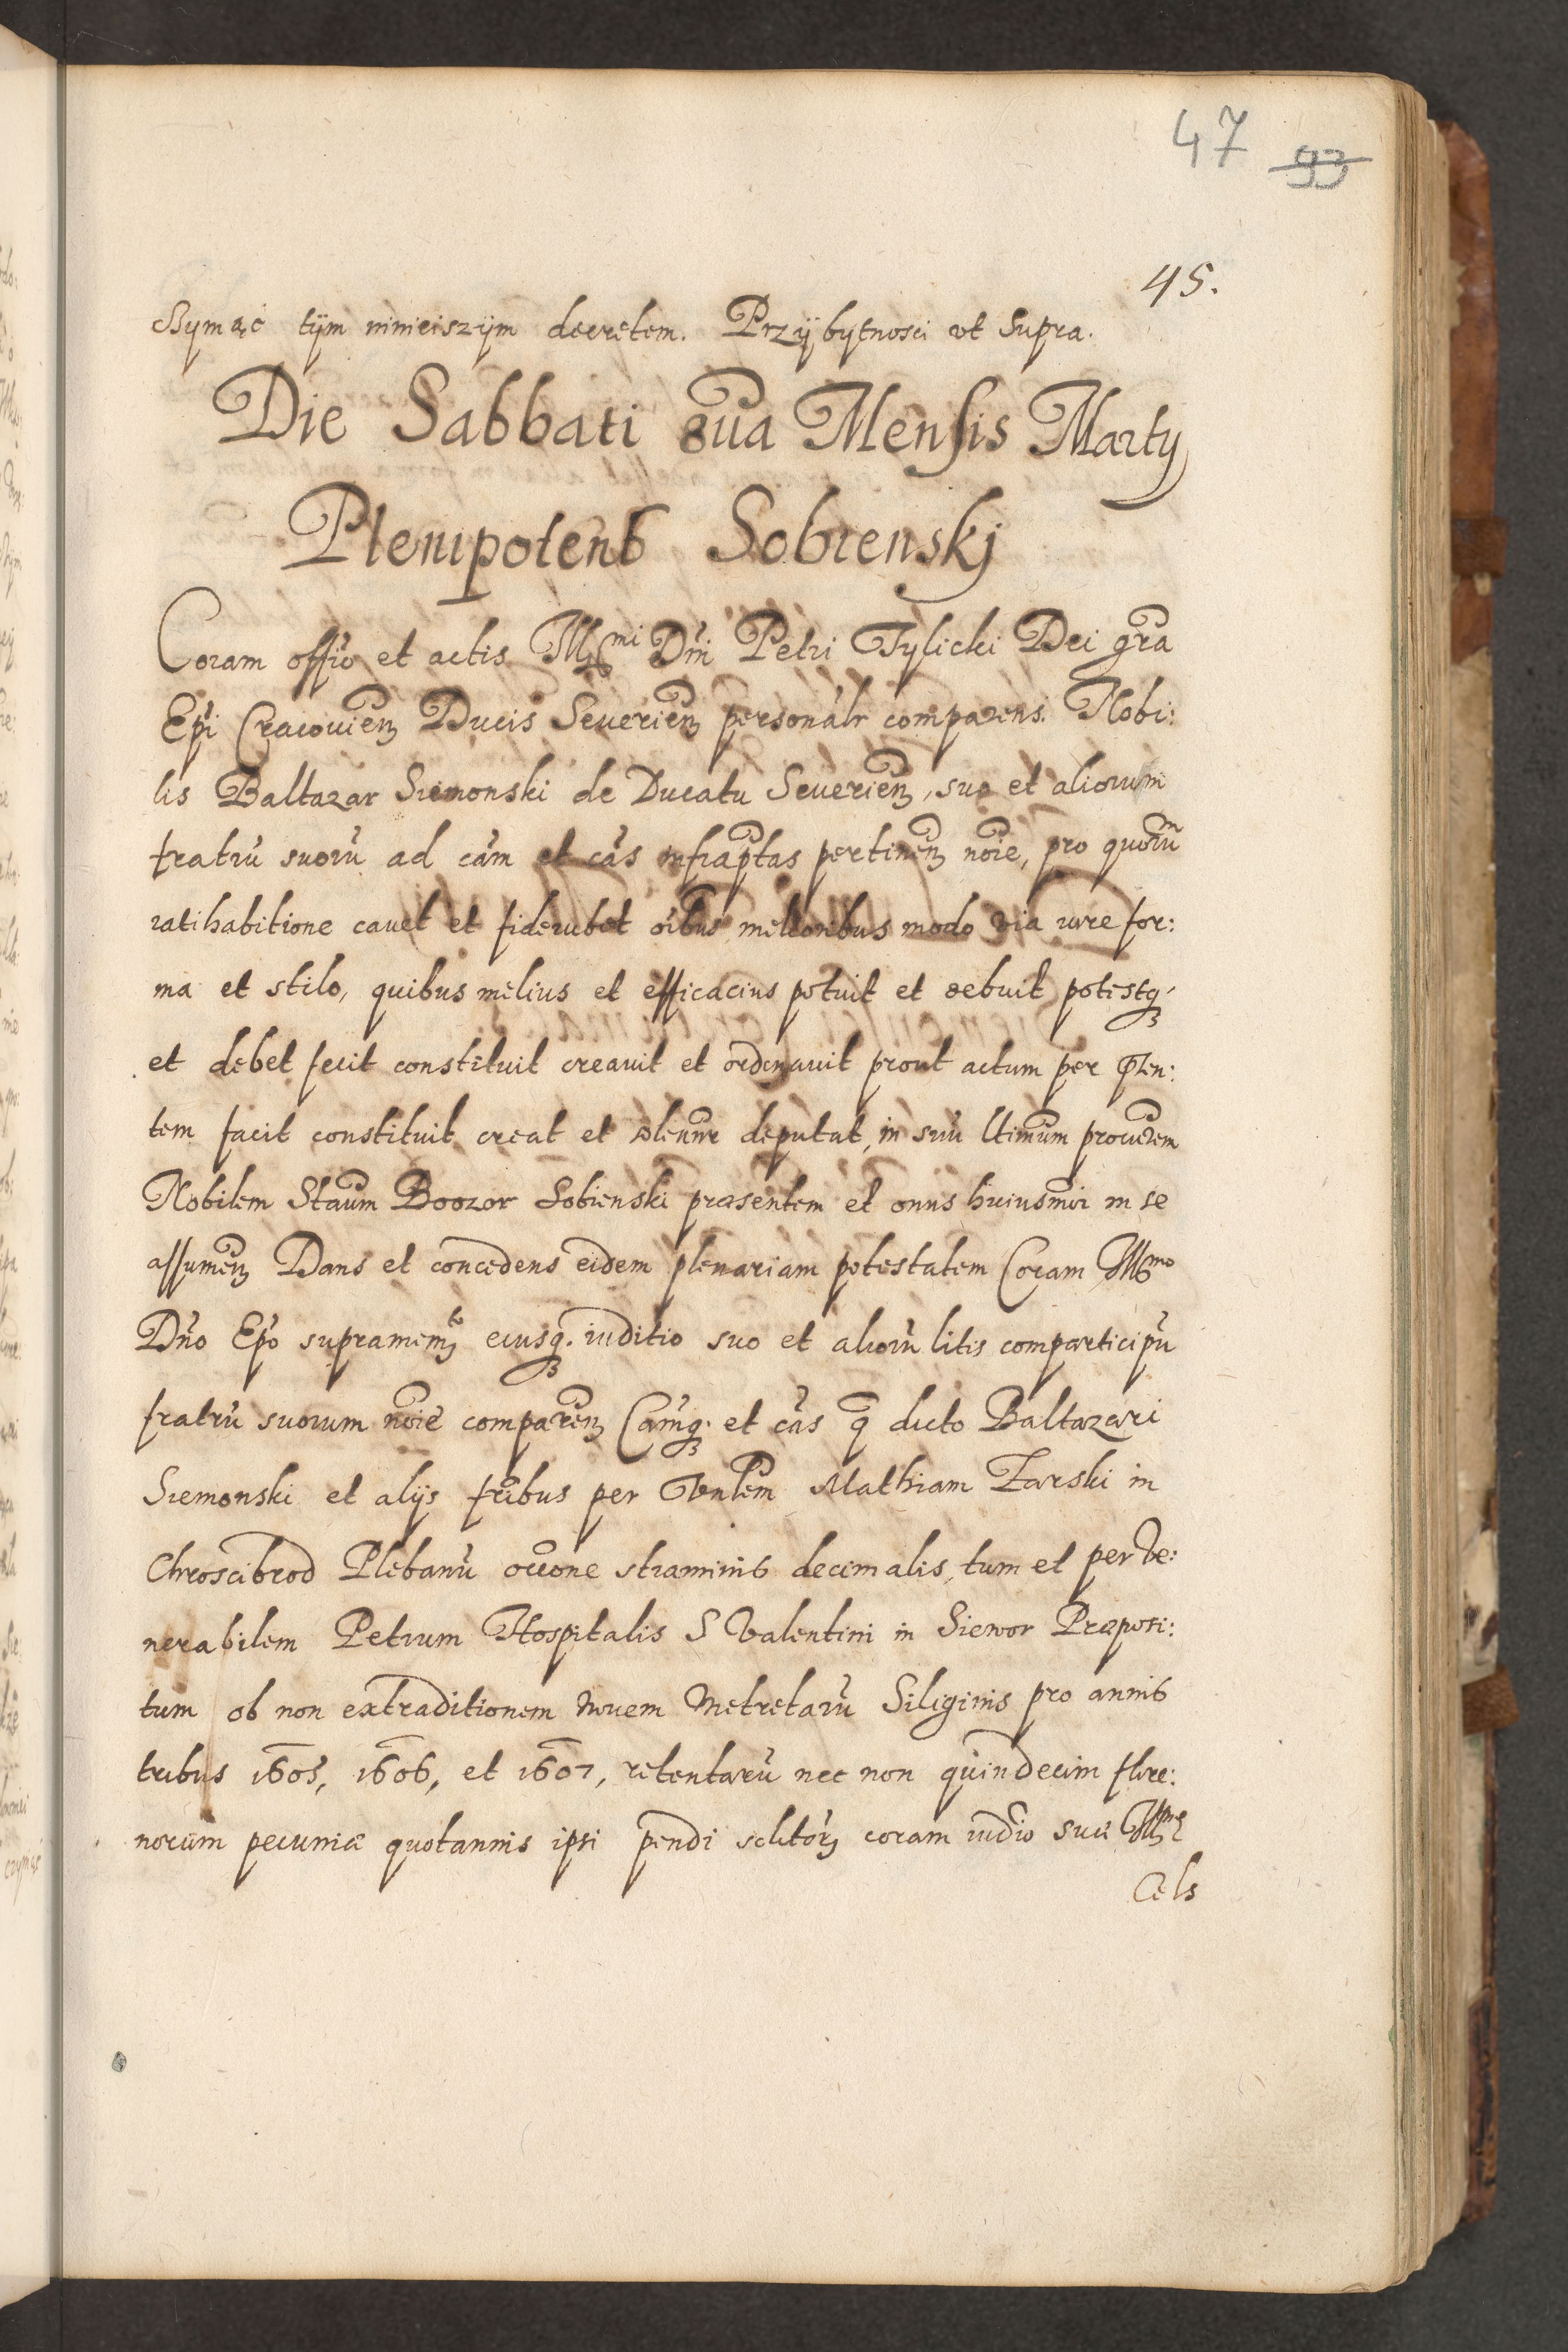 47 93
45.
czymąć tÿm ninieiszÿm decretem. Przÿbytnosci vt Supra.
Die Sabbati 8ua Mensis Martij
Plenipotens Sobienskj
Coram offio et actis Illmi Dni Petri Tylicki Dei gra
Epi Cracovien Ducis Severien personalr comparens. Nobi:
lis Baltazar Siemonski de Ducatu Severien, suo et aliorum
fratrū suorū ad cam et cas infraptas pertinen noie, pro quorū
ratihabitione cavet et fideiubet oibus melioribus modo via iure for:
ma et stilo, quibus melius et efficacius potuit et debuit potestq;
et debet fecit constituit creavit et ordinavit prout actum per pnten:
tem facit constituit creat et solennr deputat, in suū Ltimum procurem
Nobilem Staum Boozor Sobienski præsentem et onus huiusmoi in se
assumen Dans et concedens eidem plenariam potestatem Coram Illmo
Dno Epo supramemto eiusq; iuditio suo et aliorū litis comparticipū
fratrū suorum noie comparen Camq; et cas q dicto Baltazari
Siemonski et alijs fribus per Vnlem Mathiam Zarski in
Chroscibrod Plebanū occone straminis decimalis, tum et per Ve:
nerabilem Petrum Hospitalis S Valentini in Siewor Præposi:
tum ob non extraditionem Novem Metretarū Siliginis pro annis
tribus 1605, 1606, et 1607, retentarū nec non quindecim flore:
norum pecuniæ quotannis ipsi pendi solitorum coram iudio suæ Illmæ
Cels